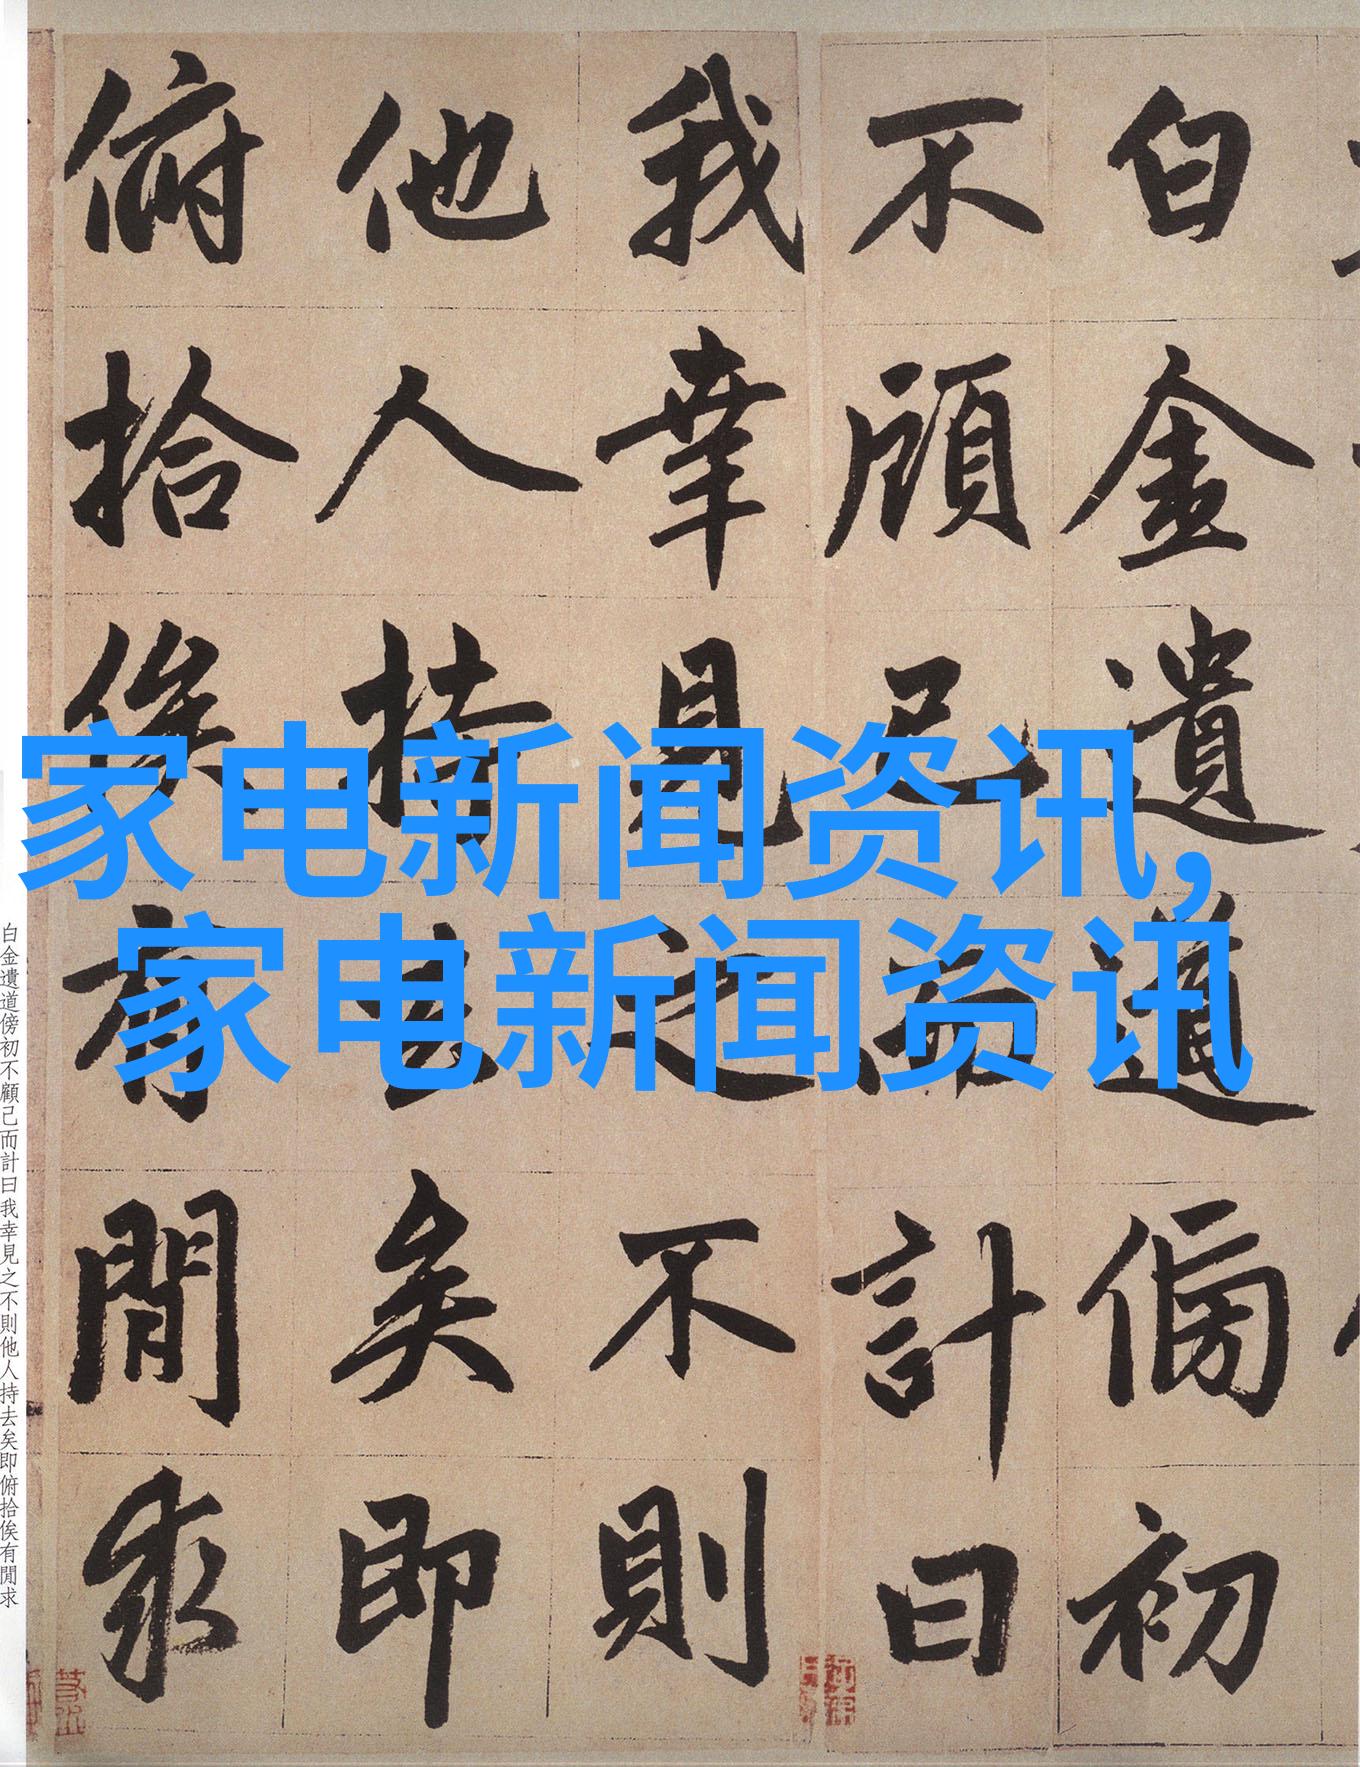 家电新闻资讯,
家电新闻资讯
白金遺道傍初
不顧己而計曰
我幸見之不則
他人持去矣即
俯拾俟有閒求
白金遺道傍初不顧己而計曰我幸見之不則他人持去矣即俯拾俟有閒求